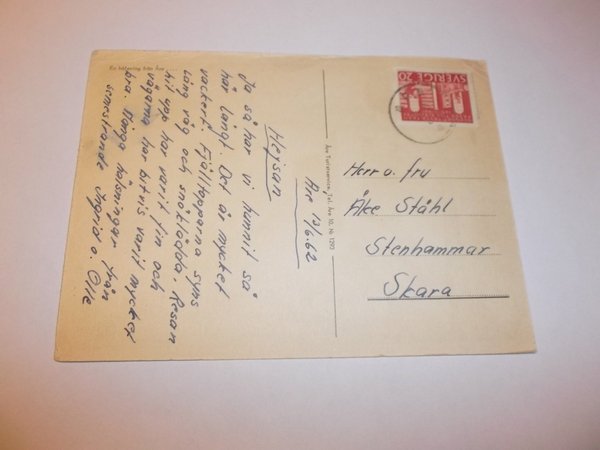 En hälsning från Åre
Hejsan
Åre 13/6.62
Ja så har vi hunnit så
här långt. Det är mycket
vackert. Fjälltopparna syns
lång väg och snöklädda. Resan
hit upp har varit fin och
vägarna har bitvis varit mycket
bra. Många hälsningar från
semestrande Ingrid o. Olle
Åre Turistservice, Tel. Åre 10. Nr 1292
SVERIGE
20
Herr o. fru
Åke Ståhl
Stenhammar
Skara